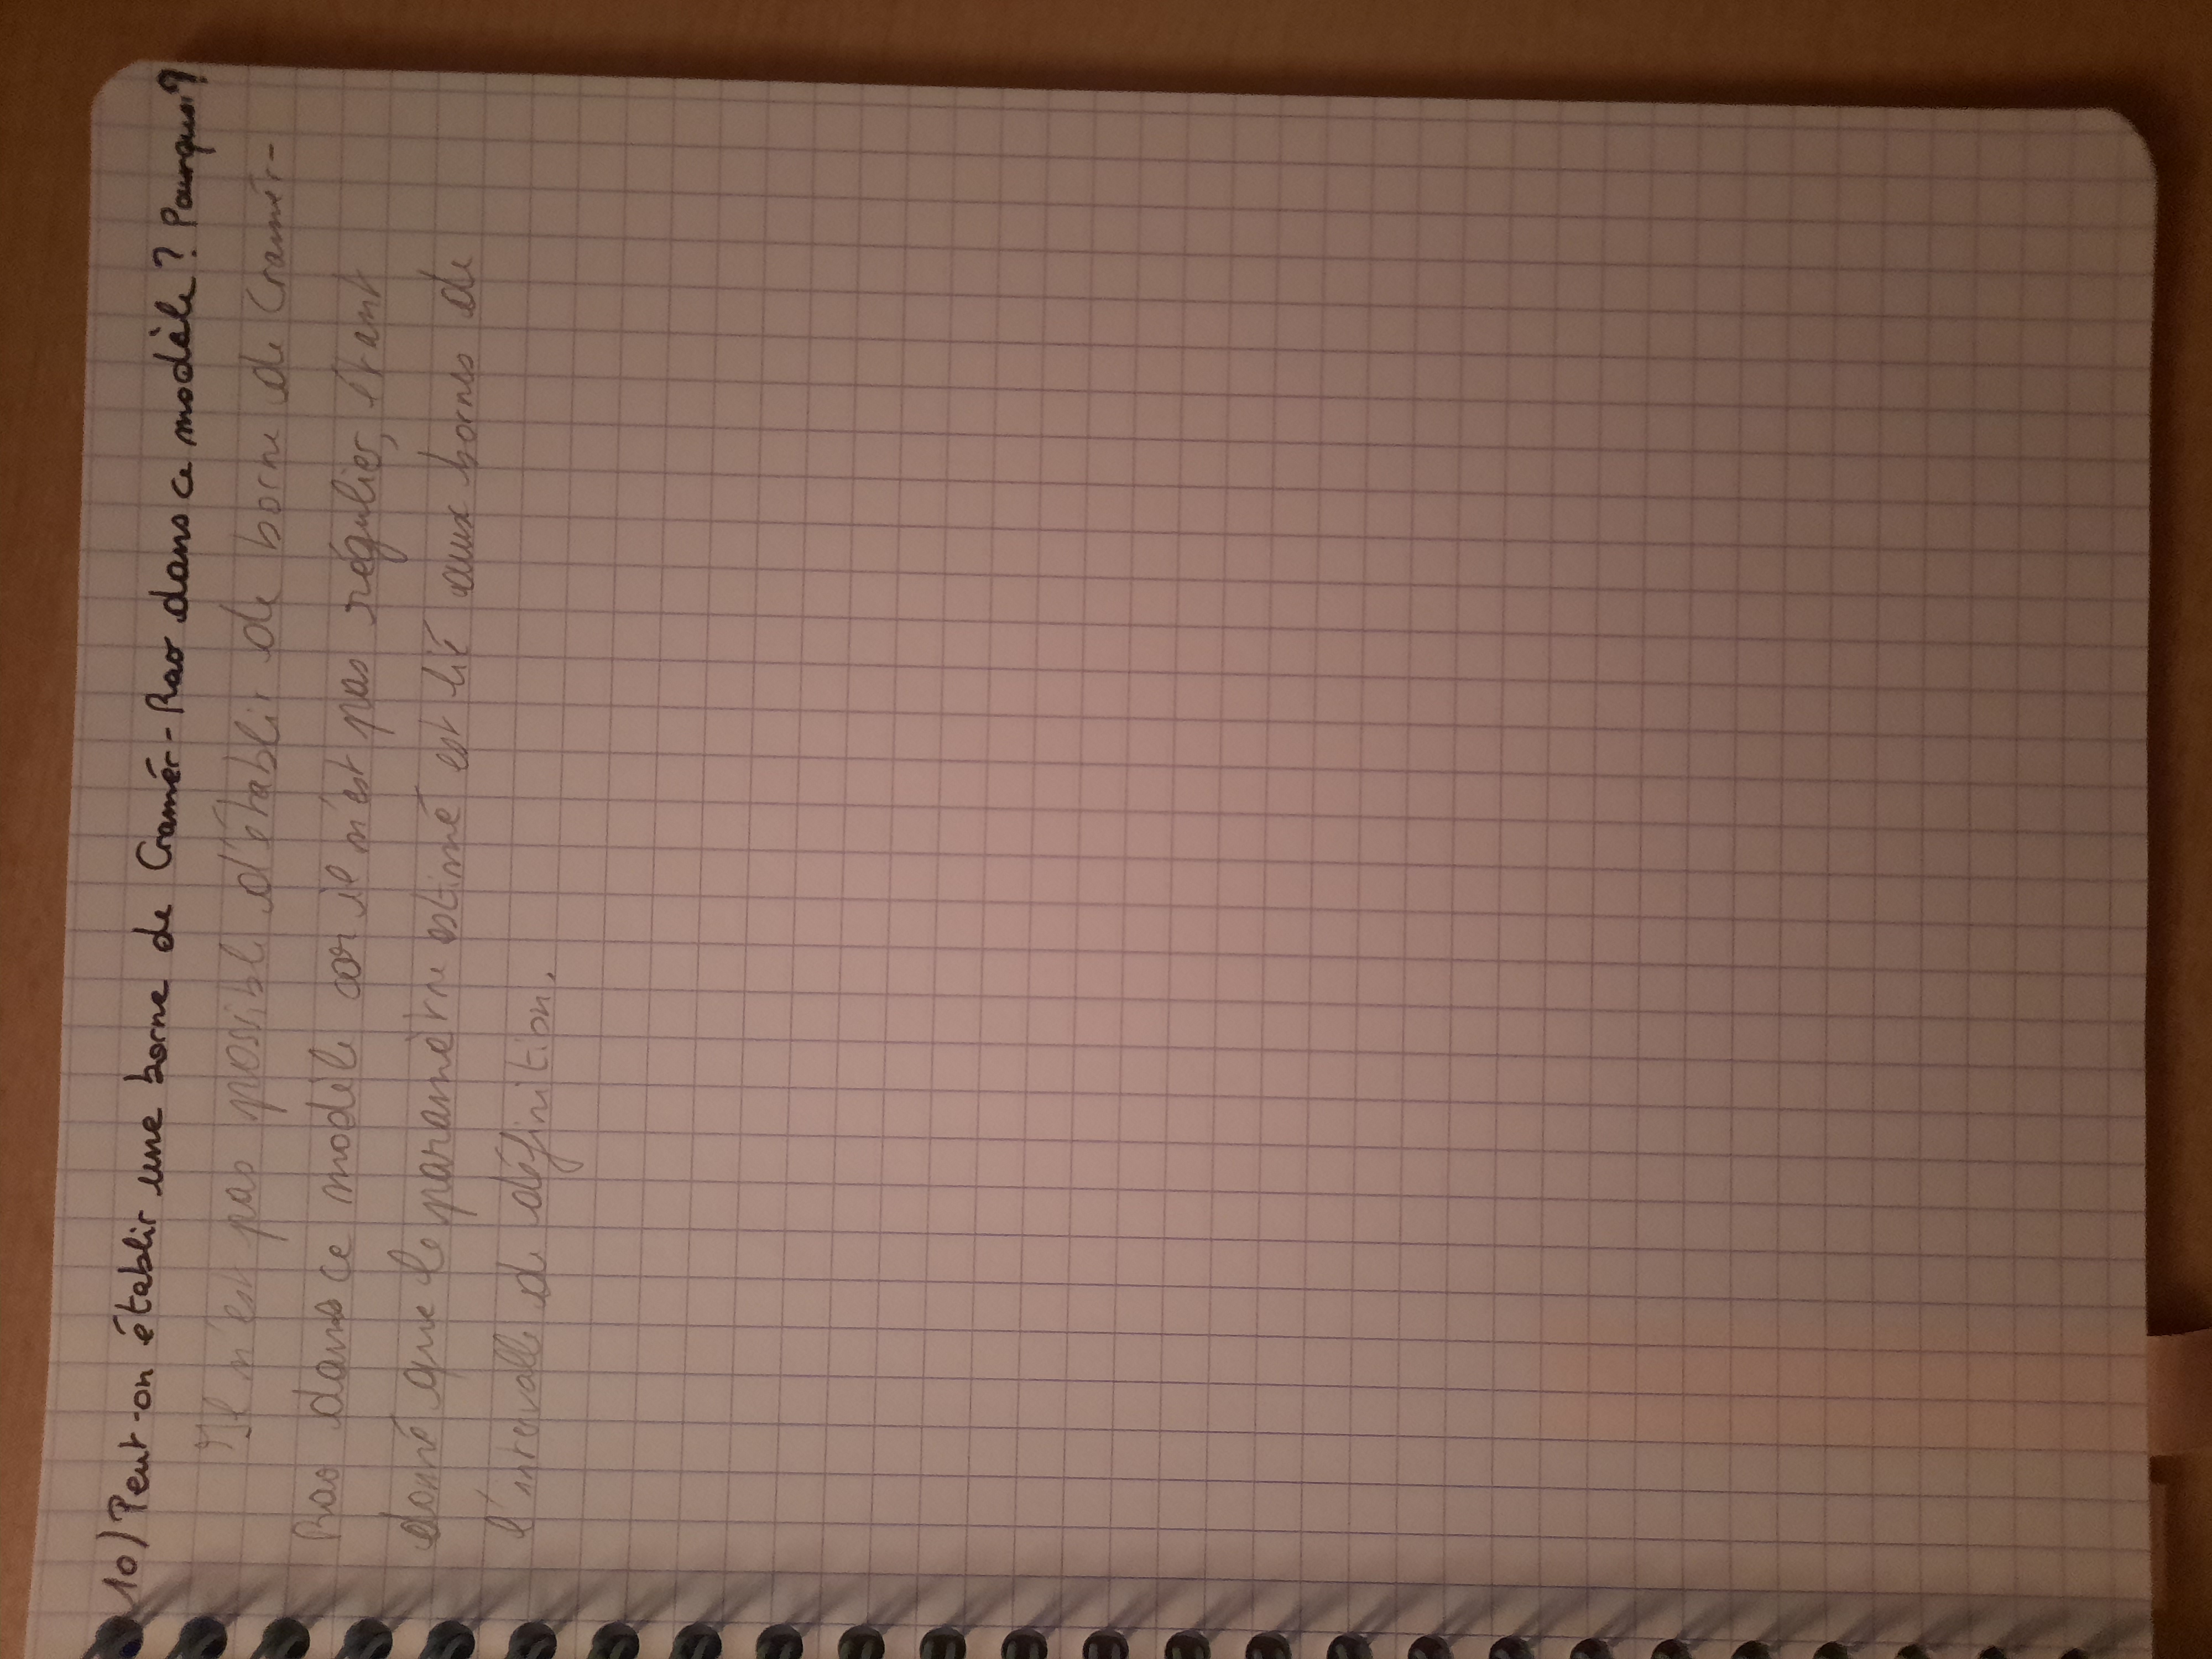 10) Peut-on établir une borne de Cramér-Rao dans ce modèle ? Pourquoi ?
Il n'est pas possible d'établir de borne de Cramér-
Rao dans ce modèle car il n'est pas régulier, étant
donné que le paramètre estimé est lié aux bornes de
l'intervalle de définition.